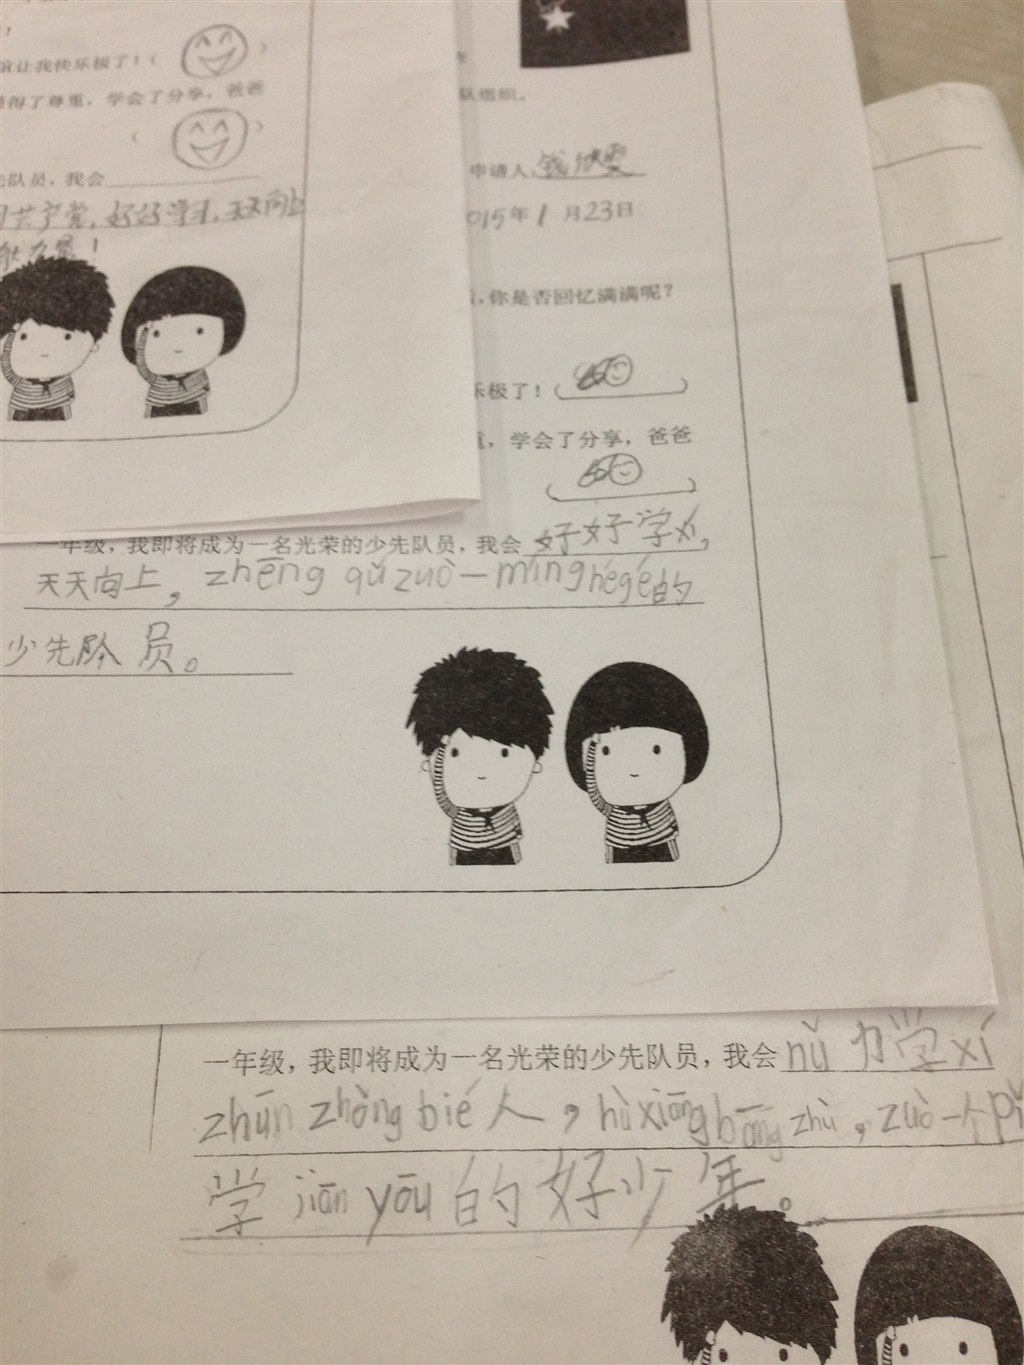 谊让我快乐极了！（ ）
得了尊重，学会了分享，爸爸
（ ）
先队员，我会
共产党，好好学习，天天向上
力量！
队组织。
申请人:
015年1月23日
你是否回忆满满呢？
乐极了！（ ）
学会了分享，爸爸
（ ）
一年级，我即将成为一名光荣的少先队员，我会好好学xí，
天天向上，zhēng qǔ zuò一míng hégé的
少先队员。
一年级，我即将成为一名光荣的少先队员，我会nǔ力学xí
zhūn zhòng bié人，hù xiāng bāng zhù，zuò一个pǐ
学jiān yōu的好少年。